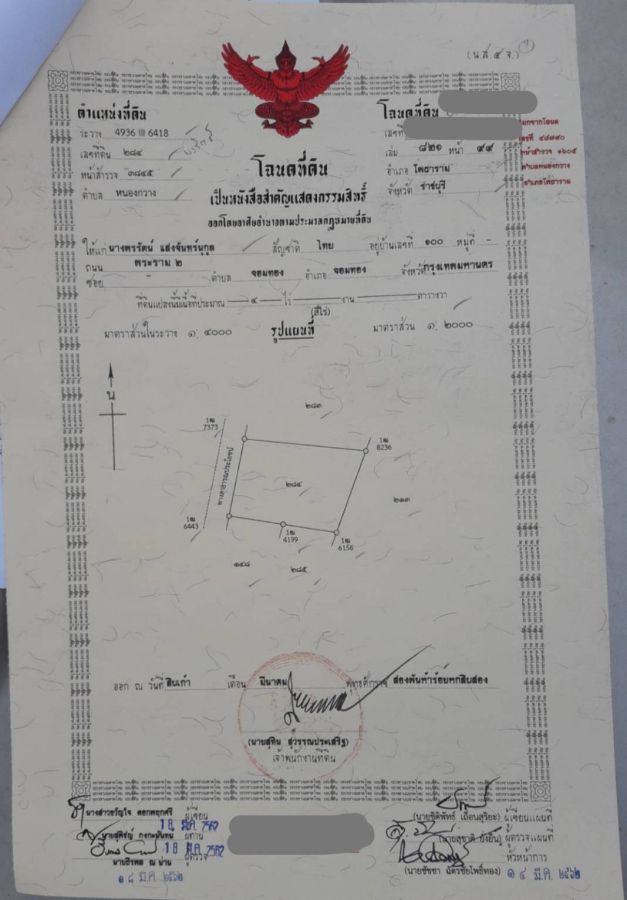 (น.ส.๔ จ.)
ตำแหน่งที่ดิน
ระวาง 4936 III 6418
เลขที่ดิน ๒๘๔
หน้าสำรวจ ๓๘๔๕
ตำบล หนองกวาง
โฉนดที่ดิน
เลขที่
เล่ม ๘๒๑ หน้า ๙๙
อำเภอ โพธาราม
จังหวัด ราชบุรี
เลขที่ ๔๘๗๙๐
หน้าสำรวจ ๑๖๐๕
ตำบลหนองกวาง
อำเภอโพธาราม
โฉนดที่ดิน
เป็นหนังสือสำคัญแสดงกรรมสิทธิ์
ออกโดยอาศัยอำนาจตามประมวลกฎหมายที่ดิน
ให้แก่ นางพรรัตน์ แสงจันทร์นุกูล สัญชาติ ไทย อยู่บ้านเลขที่ ๑๐๐ หมู่ที่ -
ถนน พระราม ๒
ซอย - ตำบล จอมทอง อำเภอ จอมทอง จังหวัด กรุงเทพมหานคร
ที่ดินแปลงนี้มีเนื้อที่ประมาณ ๔ ไร่ - งาน - ตารางวา
(สี่ไร่)
มาตราส่วนในระวาง ๑: ๔๐๐๐ รูปแผนที่ มาตราส่วน ๑: ๒๐๐๐
น
๒๘๓
1ฒ
7373
1ฒ
8236
ทางสาธารณประโยชน์
๒๘๔
๒๑๓
1ฒ
6443
1ฒ
4199
1ฒ
6156
๑๔๘
๒๘๕
ออก ณ วันที่ สิบเก้า เดือน มีนาคม พุทธศักราช สองพันห้าร้อยหกสิบสอง
(นายสุทิน สุวรรณประเสริฐ)
เจ้าพนักงานที่ดิน
ผู้เขียน
18 มี.ค. 2562
ผู้ทาน
18 มี.ค. 2562
ผู้ตรวจ
๑๘ มี.ค. ๒๕๖๒
ผู้เขียนแผนที่
ผู้ตรวจแผนที่
หัวหน้าการ
๑๔ มี.ค. ๒๕๖๒